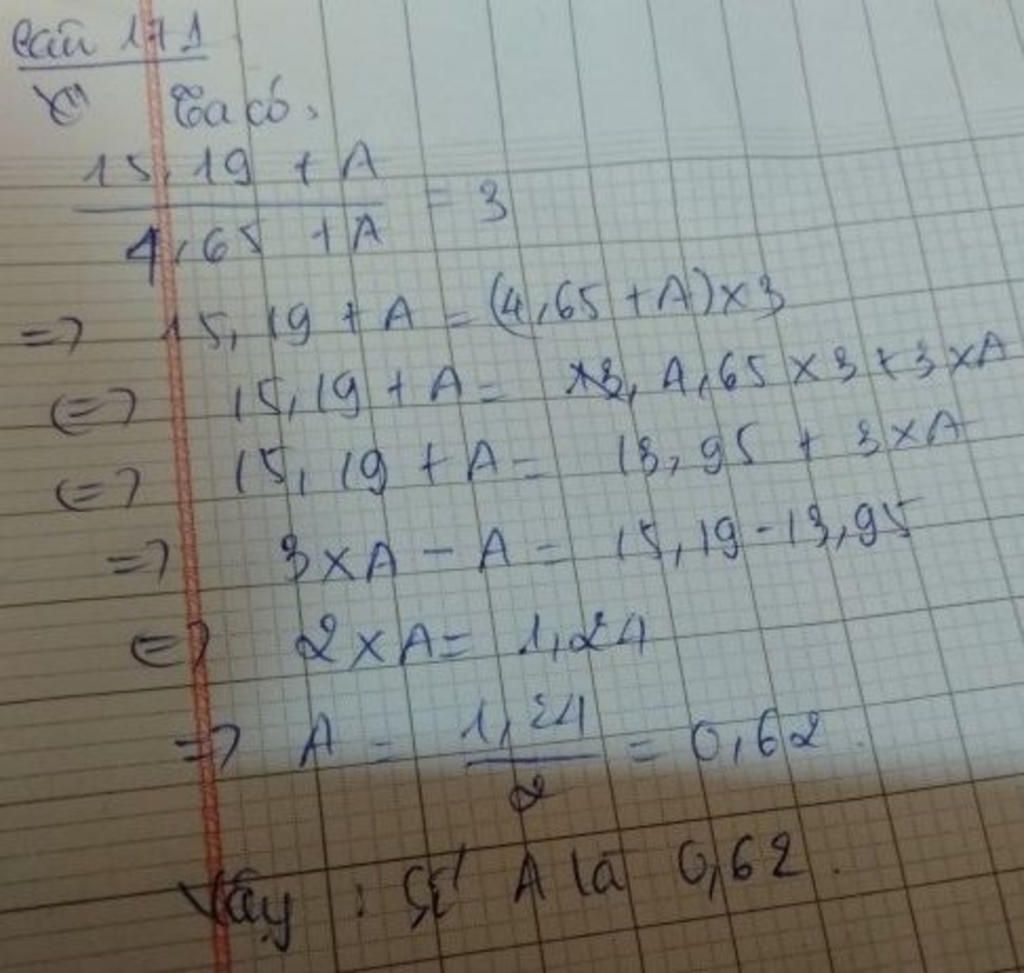 171
Ta có:
15,19 + A
4,65 + A = 3
=> 15,19 + A = (4,65 + A) x 3
<=> 15,19 + A = 4,65 x 3 + 3 x A
<=> 15,19 + A = 13,95 + 3 x A
=> 3 x A - A = 15,19 - 13,95
<=> 2 x A = 1,24
=> A = 1,24 / 2 = 0,62.
Vậy : Số A là 0,62.